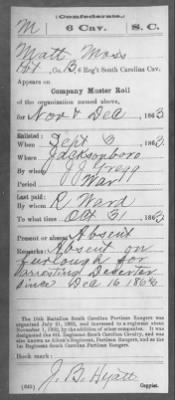 Confederate.
M 6 Cav. S. C.
Matt Moss
Pvt, Co. B, 6 Reg't South Carolina Cav.
Appears on
Company Muster Roll
of the organization named above,
for Nov & Dec, 1863
Enlisted:
When Sept 3, 1863
Where Jacksonboro
By whom J. J. Gregg
Period War
Last paid:
By whom R. Ward
To what time Oct 31, 1863
Present or absent Absent
Remarks: Absent on
furlough for
arresting Deserter
since Dec 16 1863
The 16th Battalion South Carolina Partisan Rangers was
organized July 21, 1862, and increased to a regiment about
November 1, 1862, by the addition of other companies. It was
designated the 6th Regiment South Carolina Cavalry, and was
also known as Aiken's Regiment, Partisan Rangers, and as the
1st Regiment South Carolina Partisan Rangers.
Book mark:
J. B. Hyatt
(642) Copyist.